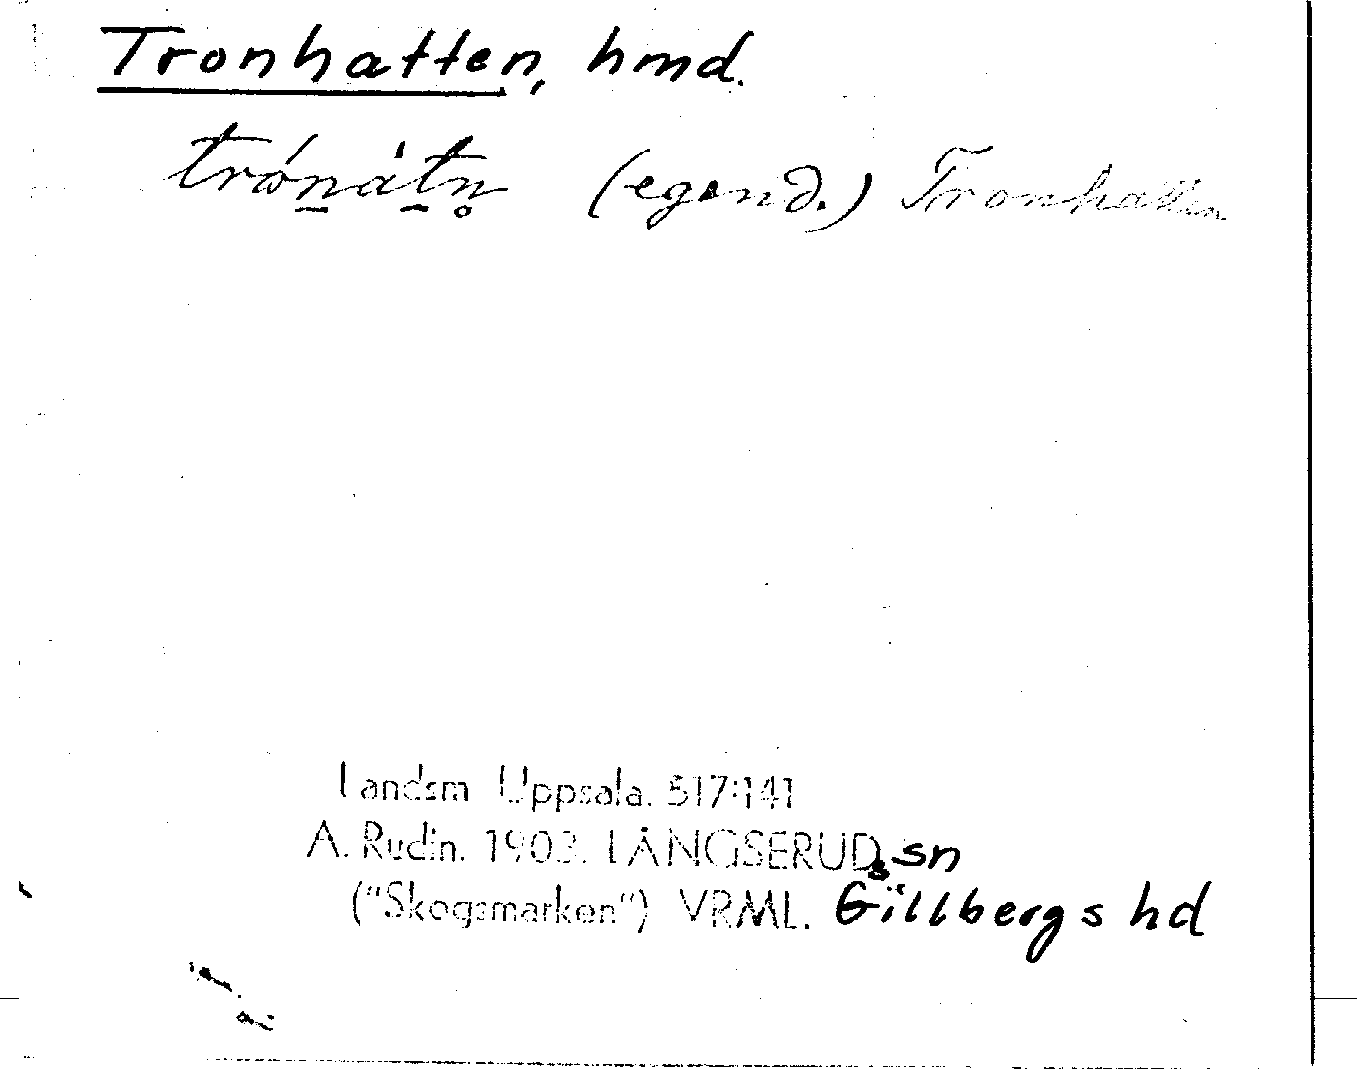 Tronhatten, hmd.
trónátn̥ (egend.) Tronhatten
Landsm Uppsala. 517:141
A. Rudin. 1903. LÅNGSERUDs sn
("Skogsmarken") VRML. Gillbergs hd